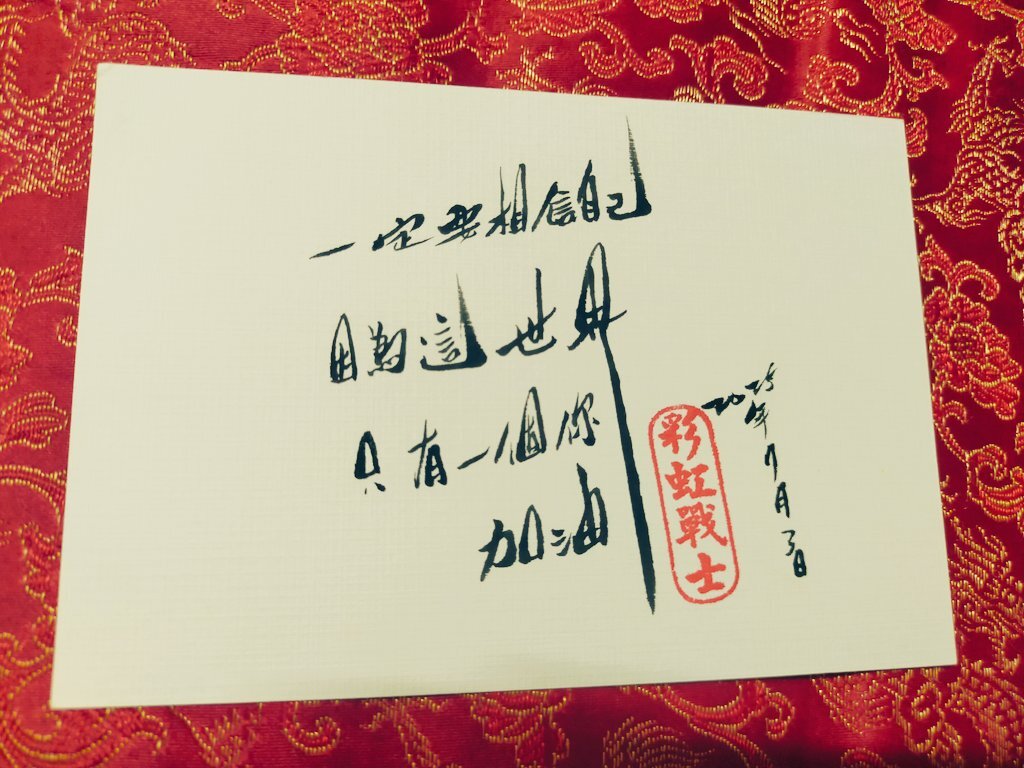 一定要相信自己
因為這世界
只有一個你
加油
彩虹戰士
2025年7月3日